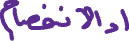 او الانفصام